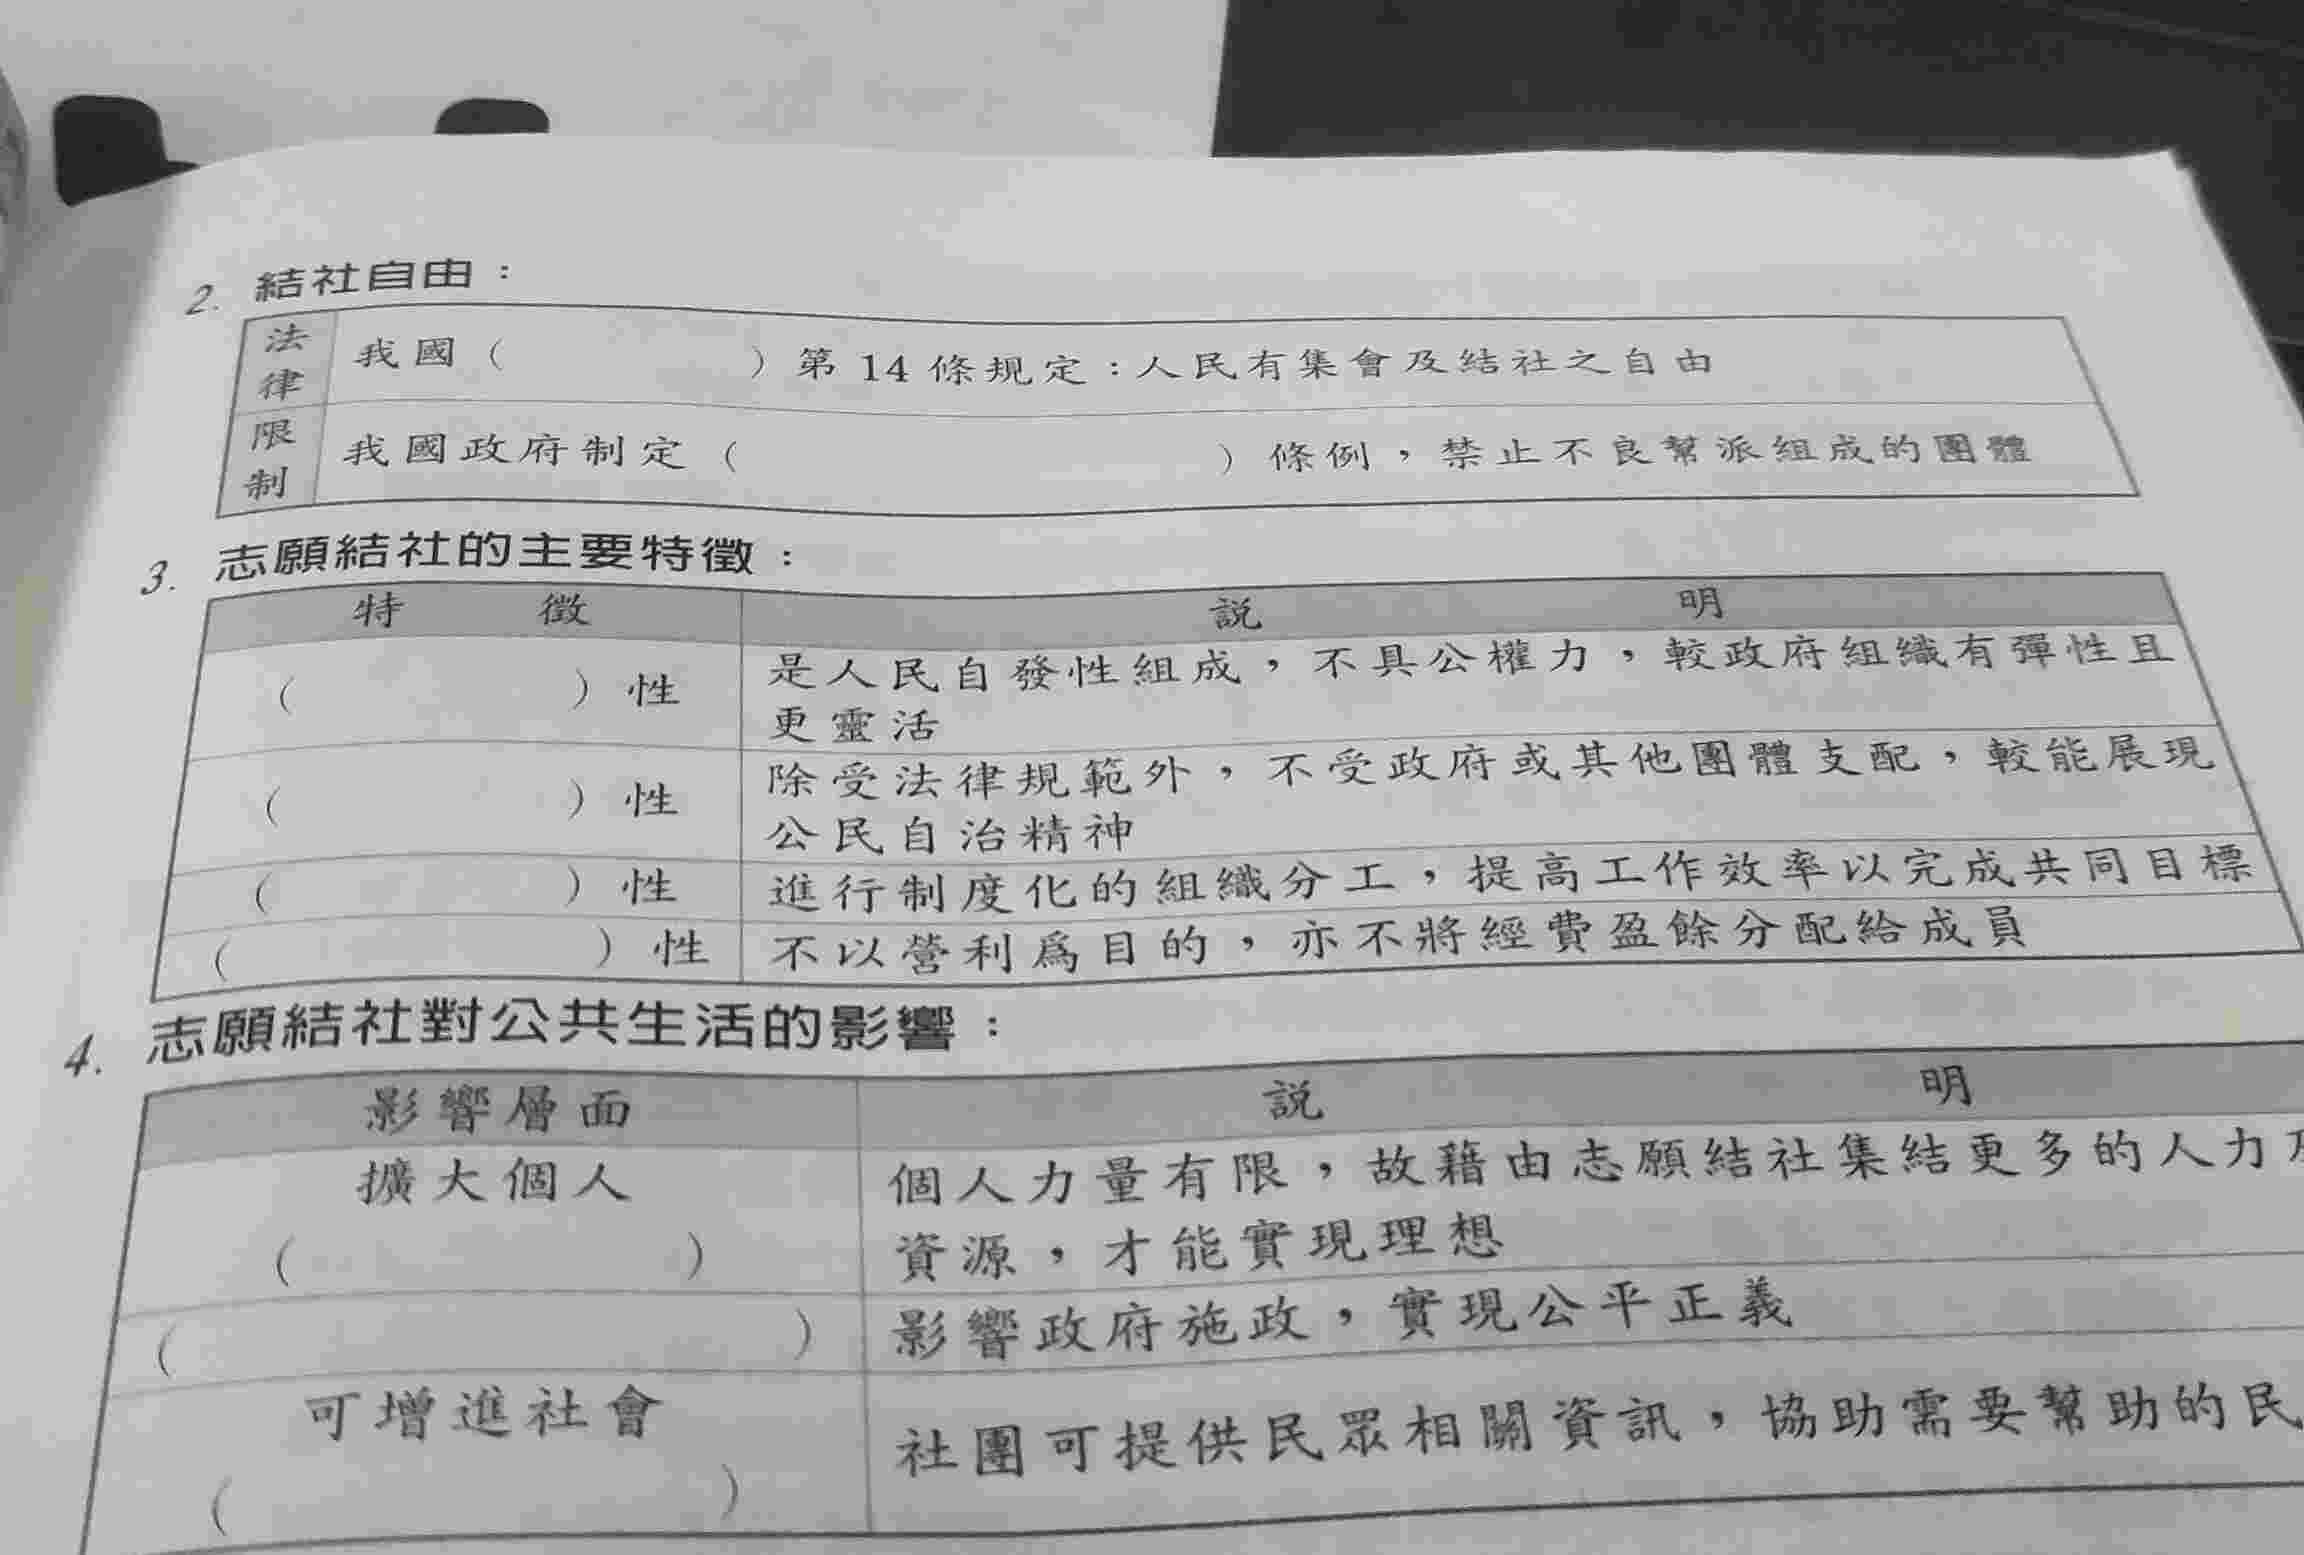 2. 結社自由：
法律限制
我國（　　　）第14條規定：人民有集會及結社之自由
我國政府制定（　　　）條例，禁止不良幫派組成的團體
3. 志願結社的主要特徵：
特徵 說明
（　　　）性 是人民自發性組成，不具公權力，較政府組織有彈性且
更靈活
（　　　）性 除受法律規範外，不受政府或其他團體支配，較能展現
公民自治精神
（　　　）性 進行制度化的組織分工，提高工作效率以完成共同目標
（　　　）性 不以營利為目的，亦不將經費盈餘分配給成員
4. 志願結社對公共生活的影響：
影響層面 說明
擴大個人 個人力量有限，故藉由志願結社集結更多的人力
（　　　） 資源，才能實現理想
（　　　） 影響政府施政，實現公平正義
可增進社會
（　　　） 社團可提供民眾相關資訊，協助需要幫助的民